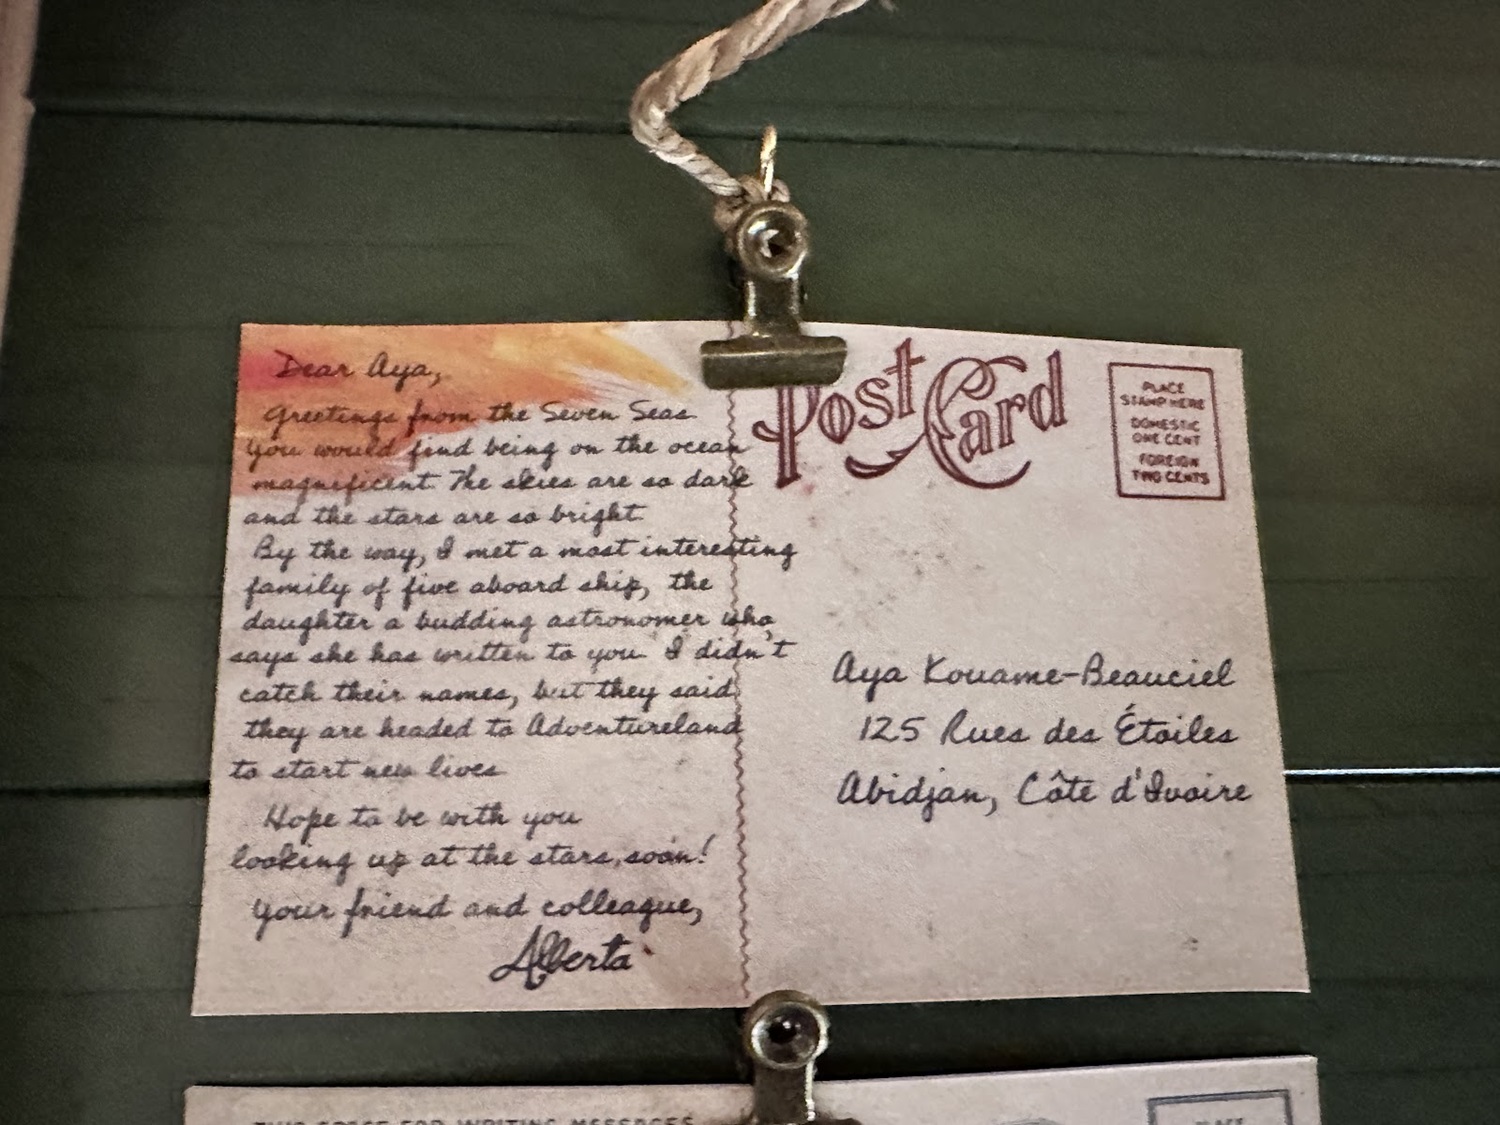 Dear Aya,
Greetings from the Seven Seas
You would find being on the ocean
magnificent. The skies are so dark
and the stars are so bright
By the way, I met a most interesting
family of five aboard ship, the
daughter a budding astronomer who,
says she has written to you. I didn't
catch their names, but they said
they are headed to Adventureland
to start new lives
Hope to be with you
looking up at the stars, soon!
Your friend and colleague,
Alberta
Post Card
PLACE
STAMP HERE
DOMESTIC
ONE CENT
FOREIGN
TWO CENTS
Aya Kouame-Beauciel
125 Rues des Étoiles
Abidjan, Côte d'Ivoire
THIS SPACE FOR WRITING MESSAGES
PLACE